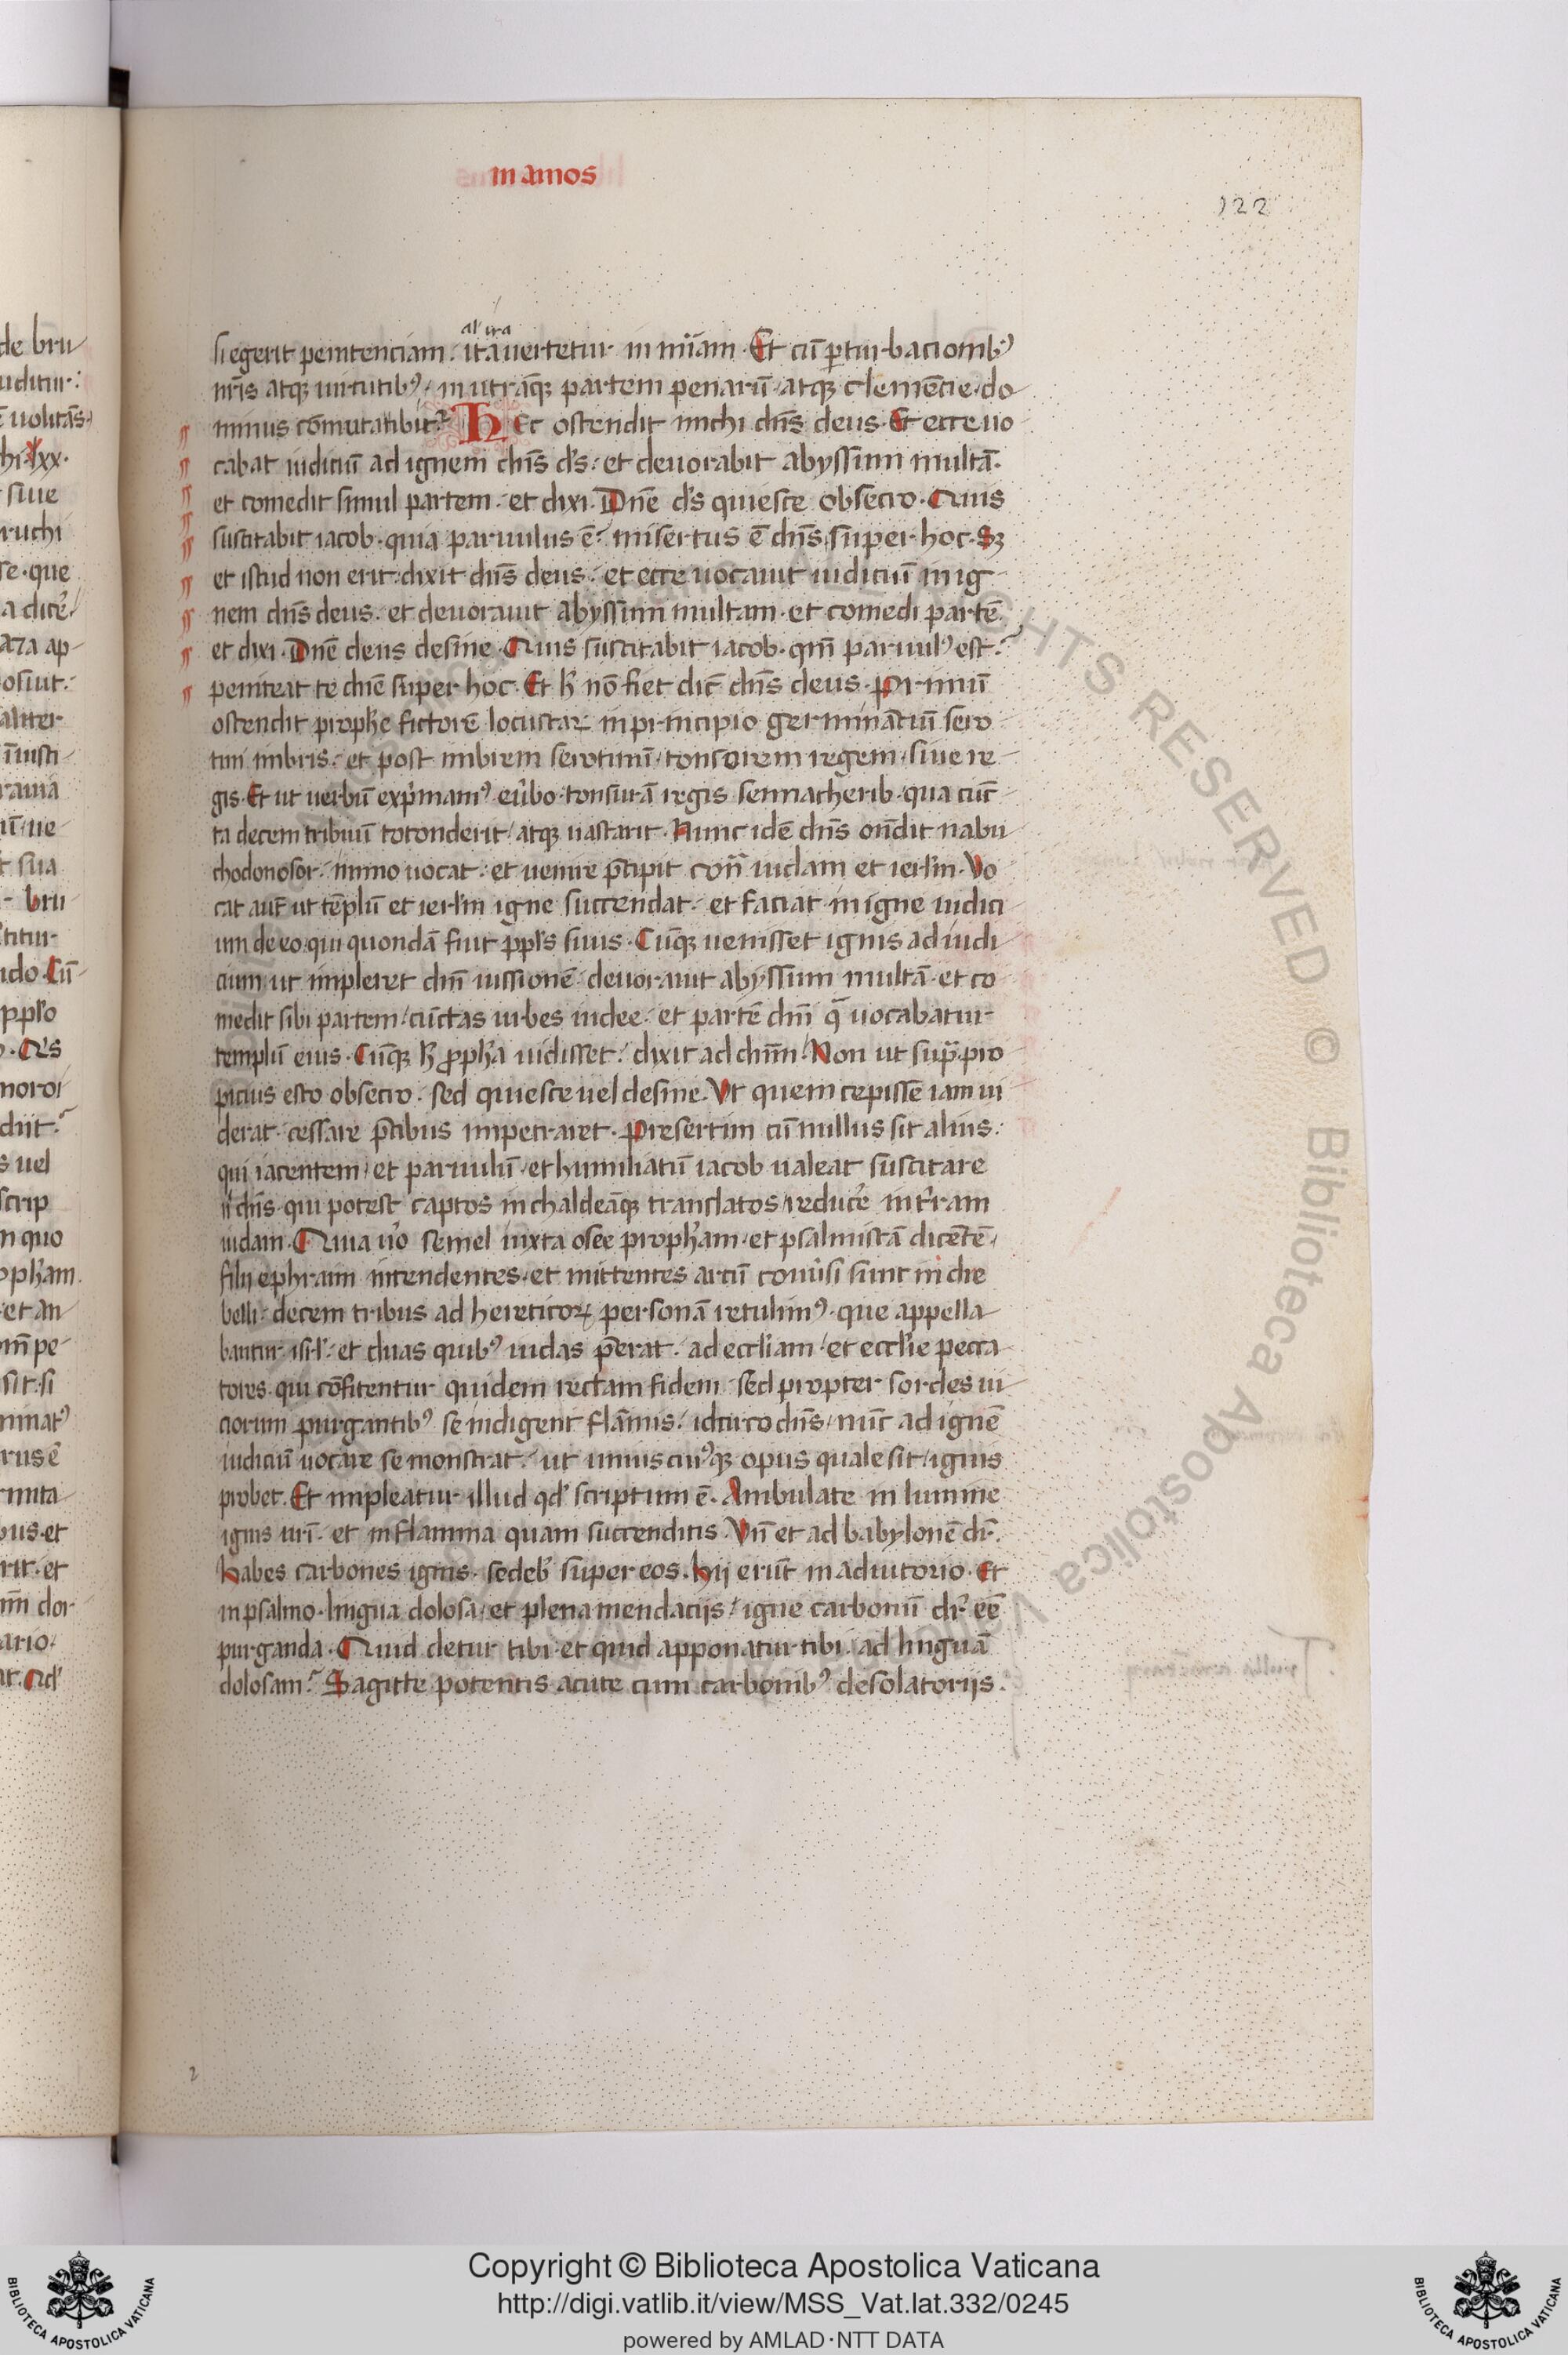 in amos
122
al' ira
si egerit penitenciam. ita uertetur in mi͞am. Et cu͞ pertur-bacionib᾿
nr͞is atq; uirtutib᾿, in utra͞q; partem penaru͞ atq; cleme͞tie, do
minus co͞mutatibit᾿. Hec ostendit michi dn͞s deus. Et ecce uo
cabat iudiciu͞ ad ignem dn͞s d's. et deuorabit abyssum multa͞.
et comedit simul partem. et dixi. Dn͞e d's quiesce obsecro. Quis
suscitabit iacob. quia paruulus e͞? misertus e͞ dn͞s super hoc. Sz
et istud non erit dixit dn͞s deus. et ecce uocauit iudiciu͞ in ig
nem dn͞s deus. et deuorauit abyssum multam. et comedi parte͞.
et dixi. Dn͞e deus desine. Quis suscitabit iacob. qm͞ paruul᾿ est?
peniteat te dn͞e super hoc. Et h' no͞ fiet dic͞ dn͞s deus. Primu͞
ostendit prophe fictore͞ locustaꝝ in principio germina͞tiu͞ sero
tini imbris. et post imbrem serotinu͞, tonsorem regem, siue re
gis. Et ut uerbu͞ exp'mam᾿ eu'bo tonsura͞ regis sennacherib. qua cu͞c
ta decem tribuu͞ totonderit, atq; uastarit. Nunc ide͞ dn͞s on͞dit nabu
chodonosor. immo uocat. et uenire p͞cipit con͞ iudam et ierl'm. Vo
cat aut͞ ut te͞plu͞ et ierl'm igne succendat. et faciat in igne iudici
um de eo. qui quonda͞ fuit ppl's suus. Cu͞q; uenisset ignis ad iudi
cium ut impleret dn͞i iussione͞. deuorauit abyssum multa͞. et co
medit sibi partem, cu͞ctas urbes iudee. et parte͞ dn͞i q͞ uocabatur
templu͞ eius. Cu͞q; h' ꝓph'a uidisset. dixit ad dn͞m. Non ut sup͞. pro
picius esto obsecro. sed quiesce uel desine. Vt quem cepisse͞ iam ui
derat. cessare p͞cibus impetraret. Presertim cu͞ nullus sit alius.
qui iacentem, et paruulu͞, et humiliatu͞ iacob ualeat suscitare
n' dn͞s. qui potest captos in chaldea͞q; translatos, reduce' in t'ram
iudam. Quia u'o semel iuxta osee proph'am. et psalmista͞ dicente͞,
filij ephraim intendentes. et mittentes arcu͞ conu'si sunt in die
belli. decem tribus ad hereticoꝝ persona͞ retulim᾿. que appella
bantur isr'l. et duas quib᾿ iudas p͞erat. ad eccl'iam, et eccl'ie pecca
tores. qui co͞fitentur quidem rectam fidem. sed propter sordes ui
ciorum purgantib᾿ se indigent fla͞mis. idcirco dn͞s, nu͞c ad igne͞
iudiciu͞ uocare se monstrat. ut uniuscui᾿q; opus quale sit, ignis
probet. Et impleatur illud qd' scriptum e͞. Ambulate in lumine
ignis ur͞i. et in flamma quam succenditis. Vn͞ et ad babylone͞ dr͞.
Habes carbones ignis. sedeb' super eos. hij eru͞t in adiutorio. Et
in psalmo. lingua dolosa, et plena mendacijs, igne carbonu͞ dr͞ ee͞
purganda. Quid detur tibi. et quid apponatur tibi. ad lingua͞
dolosam? Sagitte potentis acute cum carbonib᾿ desolatorijs.
Copyright © Biblioteca Apostolica Vaticana
http://digi.vatlib.it/view/MSS_Vat.lat.332/0245
powered by AMLAD·NTT DATA